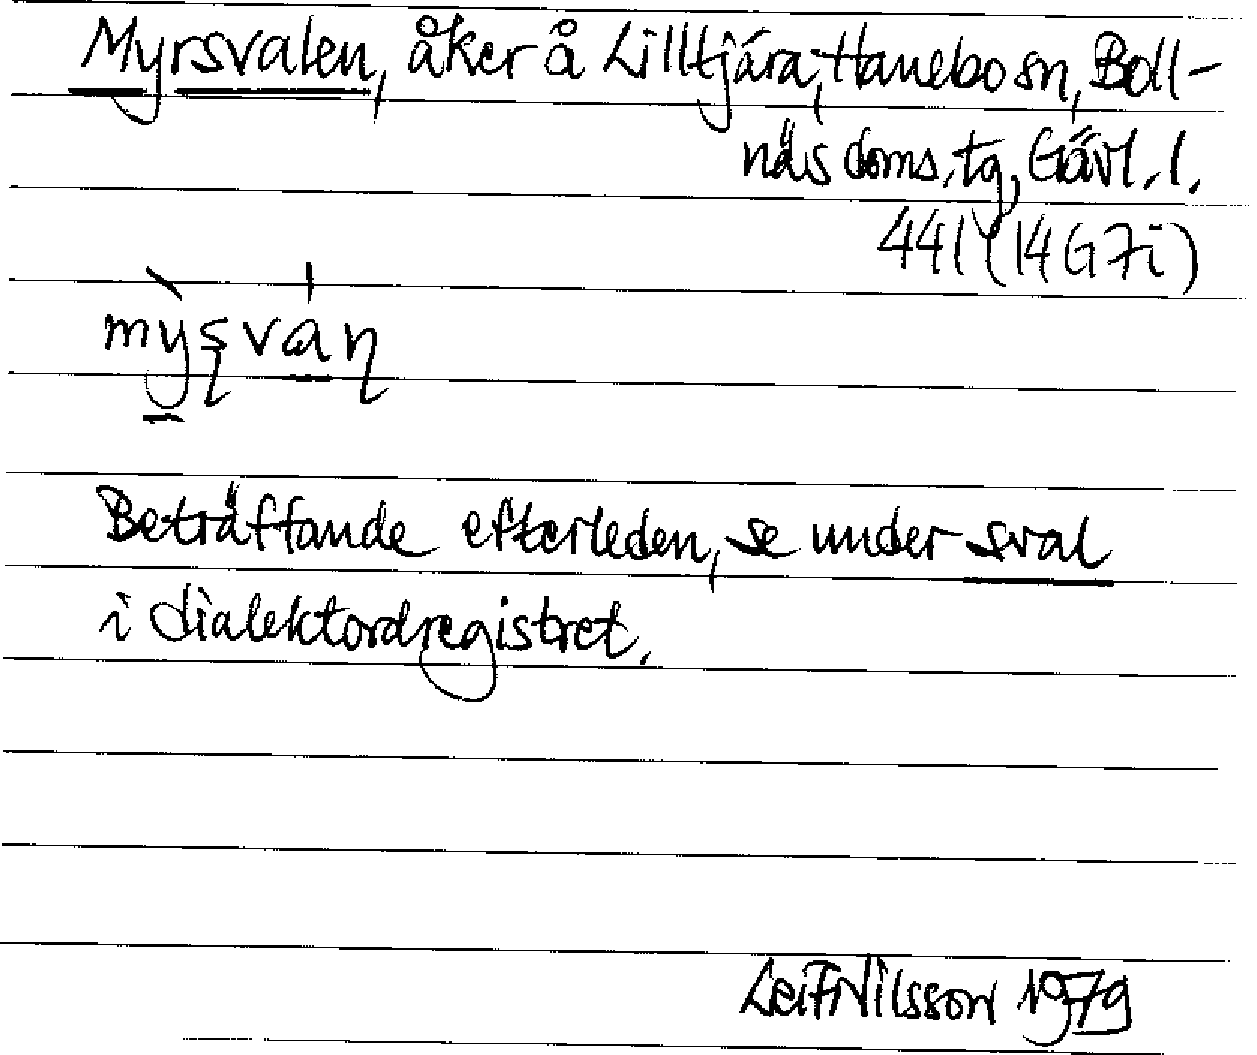 Myrsvalen, åker å Lilltjära, Hanebo sn, Boll-
näs doms. tg, Gävl. l.
441 (14G7i)
mỳʂván̩
Beträffande efterleden, se under sval
i dialektordregistret.
Leif Nilsson 1979